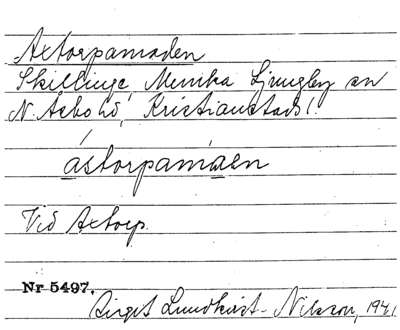 Axtorpamaden
Skillinge, Munka Ljungby sn
N. Åsbo hd, Kristianstads l.
ástorpamàen
Vid Axtorp.
Nr 5497.
Birgit Lundkvist-Nilsson, 1941